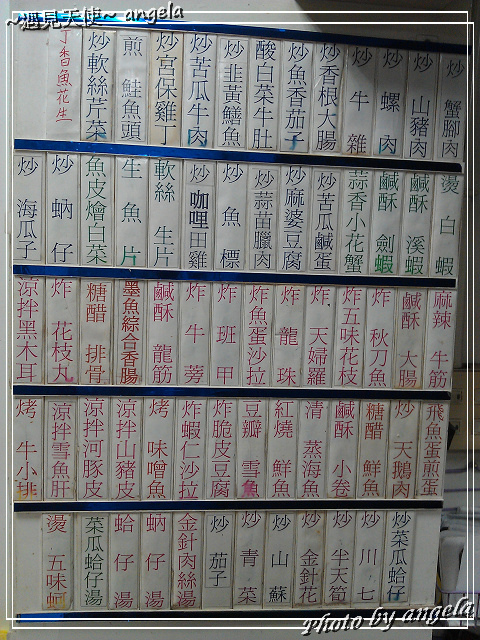 ~遇見天使~ angela
炒蟹腳肉
炒山豬肉
炒螺肉
炒牛雜
炒香根大腸
炒魚香茄子
酸白菜牛肚
炒韭黃鱔魚
炒苦瓜牛肉
炒宮保雞丁
煎鮭魚頭
炒軟絲芹菜
丁香魚花生
燙白蝦
鹹酥溪蝦
鹹酥劍蝦
蒜香小花蟹
炒苦瓜鹹蛋
炒麻婆豆腐
炒蒜苗臘肉
炒魚標
炒咖哩田雞
軟絲生片
生魚片
魚皮燴白菜
炒蚋仔
炒海瓜子
麻辣牛筋
鹹酥大腸
炸秋刀魚
炸五味花枝
炸天婦羅
炸龍珠
炸魚蛋沙拉
炸班甲
炸牛蒡
鹹酥龍筋
墨魚綜合香腸
糖醋排骨
炸花枝丸
涼拌黑木耳
飛魚蛋煎蛋
炒天鵝肉
糖醋鮮魚
鹹酥小卷
清蒸海魚
紅燒鮮魚
豆瓣雪魚
炸脆皮豆腐
炸蝦仁沙拉
烤味噌魚
涼拌山豬皮
涼拌河豚皮
涼拌雪魚肝
烤牛小排
炒菜瓜蛤仔
炒川七
炒半天筍
炒金針花
炒山蘇
炒青菜
炒茄子
金針肉絲湯
蚋仔湯
蛤仔湯
菜瓜蛤仔湯
燙五味蚵
Photo by angela